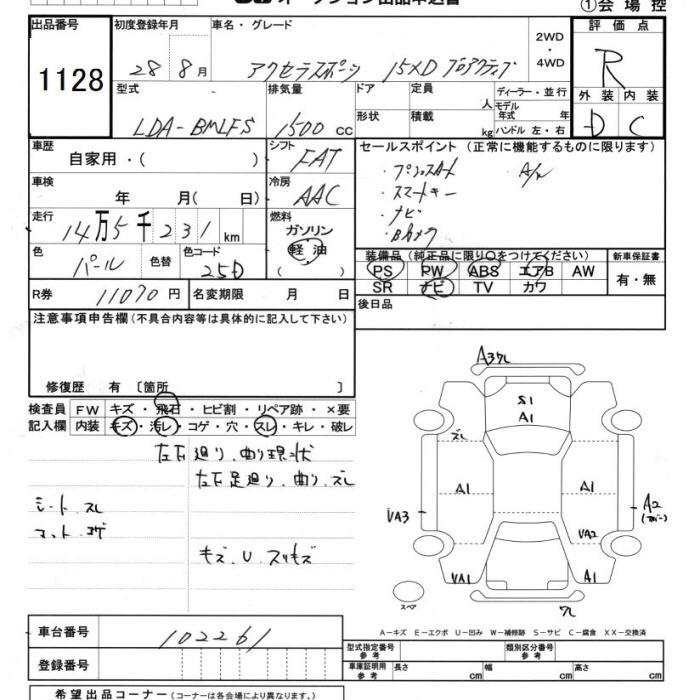 オークション出品申込書
①会場控
出品番号 初度登録年月 車名・グレード 評価点
1128 28年 8月 アクセラスポーツ 15XD プロアクティブ 2WD・4WD R
型式 排気量 ドア 定員 人 ディーラー・並行 外装 内装
LDA-BMLFS 1500cc 形状 積載 kg モデル年式 年 ハンドル 左・右 D C
車歴 自家用・( ) シフト FAT セールスポイント (正常に機能するものに限ります)
・プッシュスタート ・A/W
車検 年 月 ( 日) 冷房 AAC ・スマートキー
・ナビ
走行 14万5千231km 燃料 ガソリン 軽油 ( ) ・Bカメラ
色 パール 色替 色コード 25D 装備品 (純正品に限り○をつけてください) 新車保証書
PS PW ABS エアB AW 有・無
SR ナビ TV カワ
R券 11070円 名変期限 月 日 後日品
注意事項申告欄 (不具合内容等は具体的に記入して下さい)
修復歴 有 〔箇所 〕
検査員 FW キズ・飛石・ヒビ割・リペア跡・×要
記入欄 内装 キズ・汚レ・コゲ・穴・スレ・キレ・破レ
左右廻り、曲り現状
左右足廻り、曲り、ズレ
シート スレ
マット コゲ
キズ、U、スリキズ
A3ワレ
S1
A1
ズレ
A1 A1
UA3 A2
UA2
UA1 A1
スペア ワレ
A-キズ E-エクボ U-凹み W-補修跡 S-サビ C-腐食 XX-交換済
車台番号 102261
型式指定番号 参考 類別区分番号 参考
登録番号 車庫証明用 参考 長さ cm 幅 cm 高さ cm
希望出品コーナー (コーナーは各会場により異なります。)